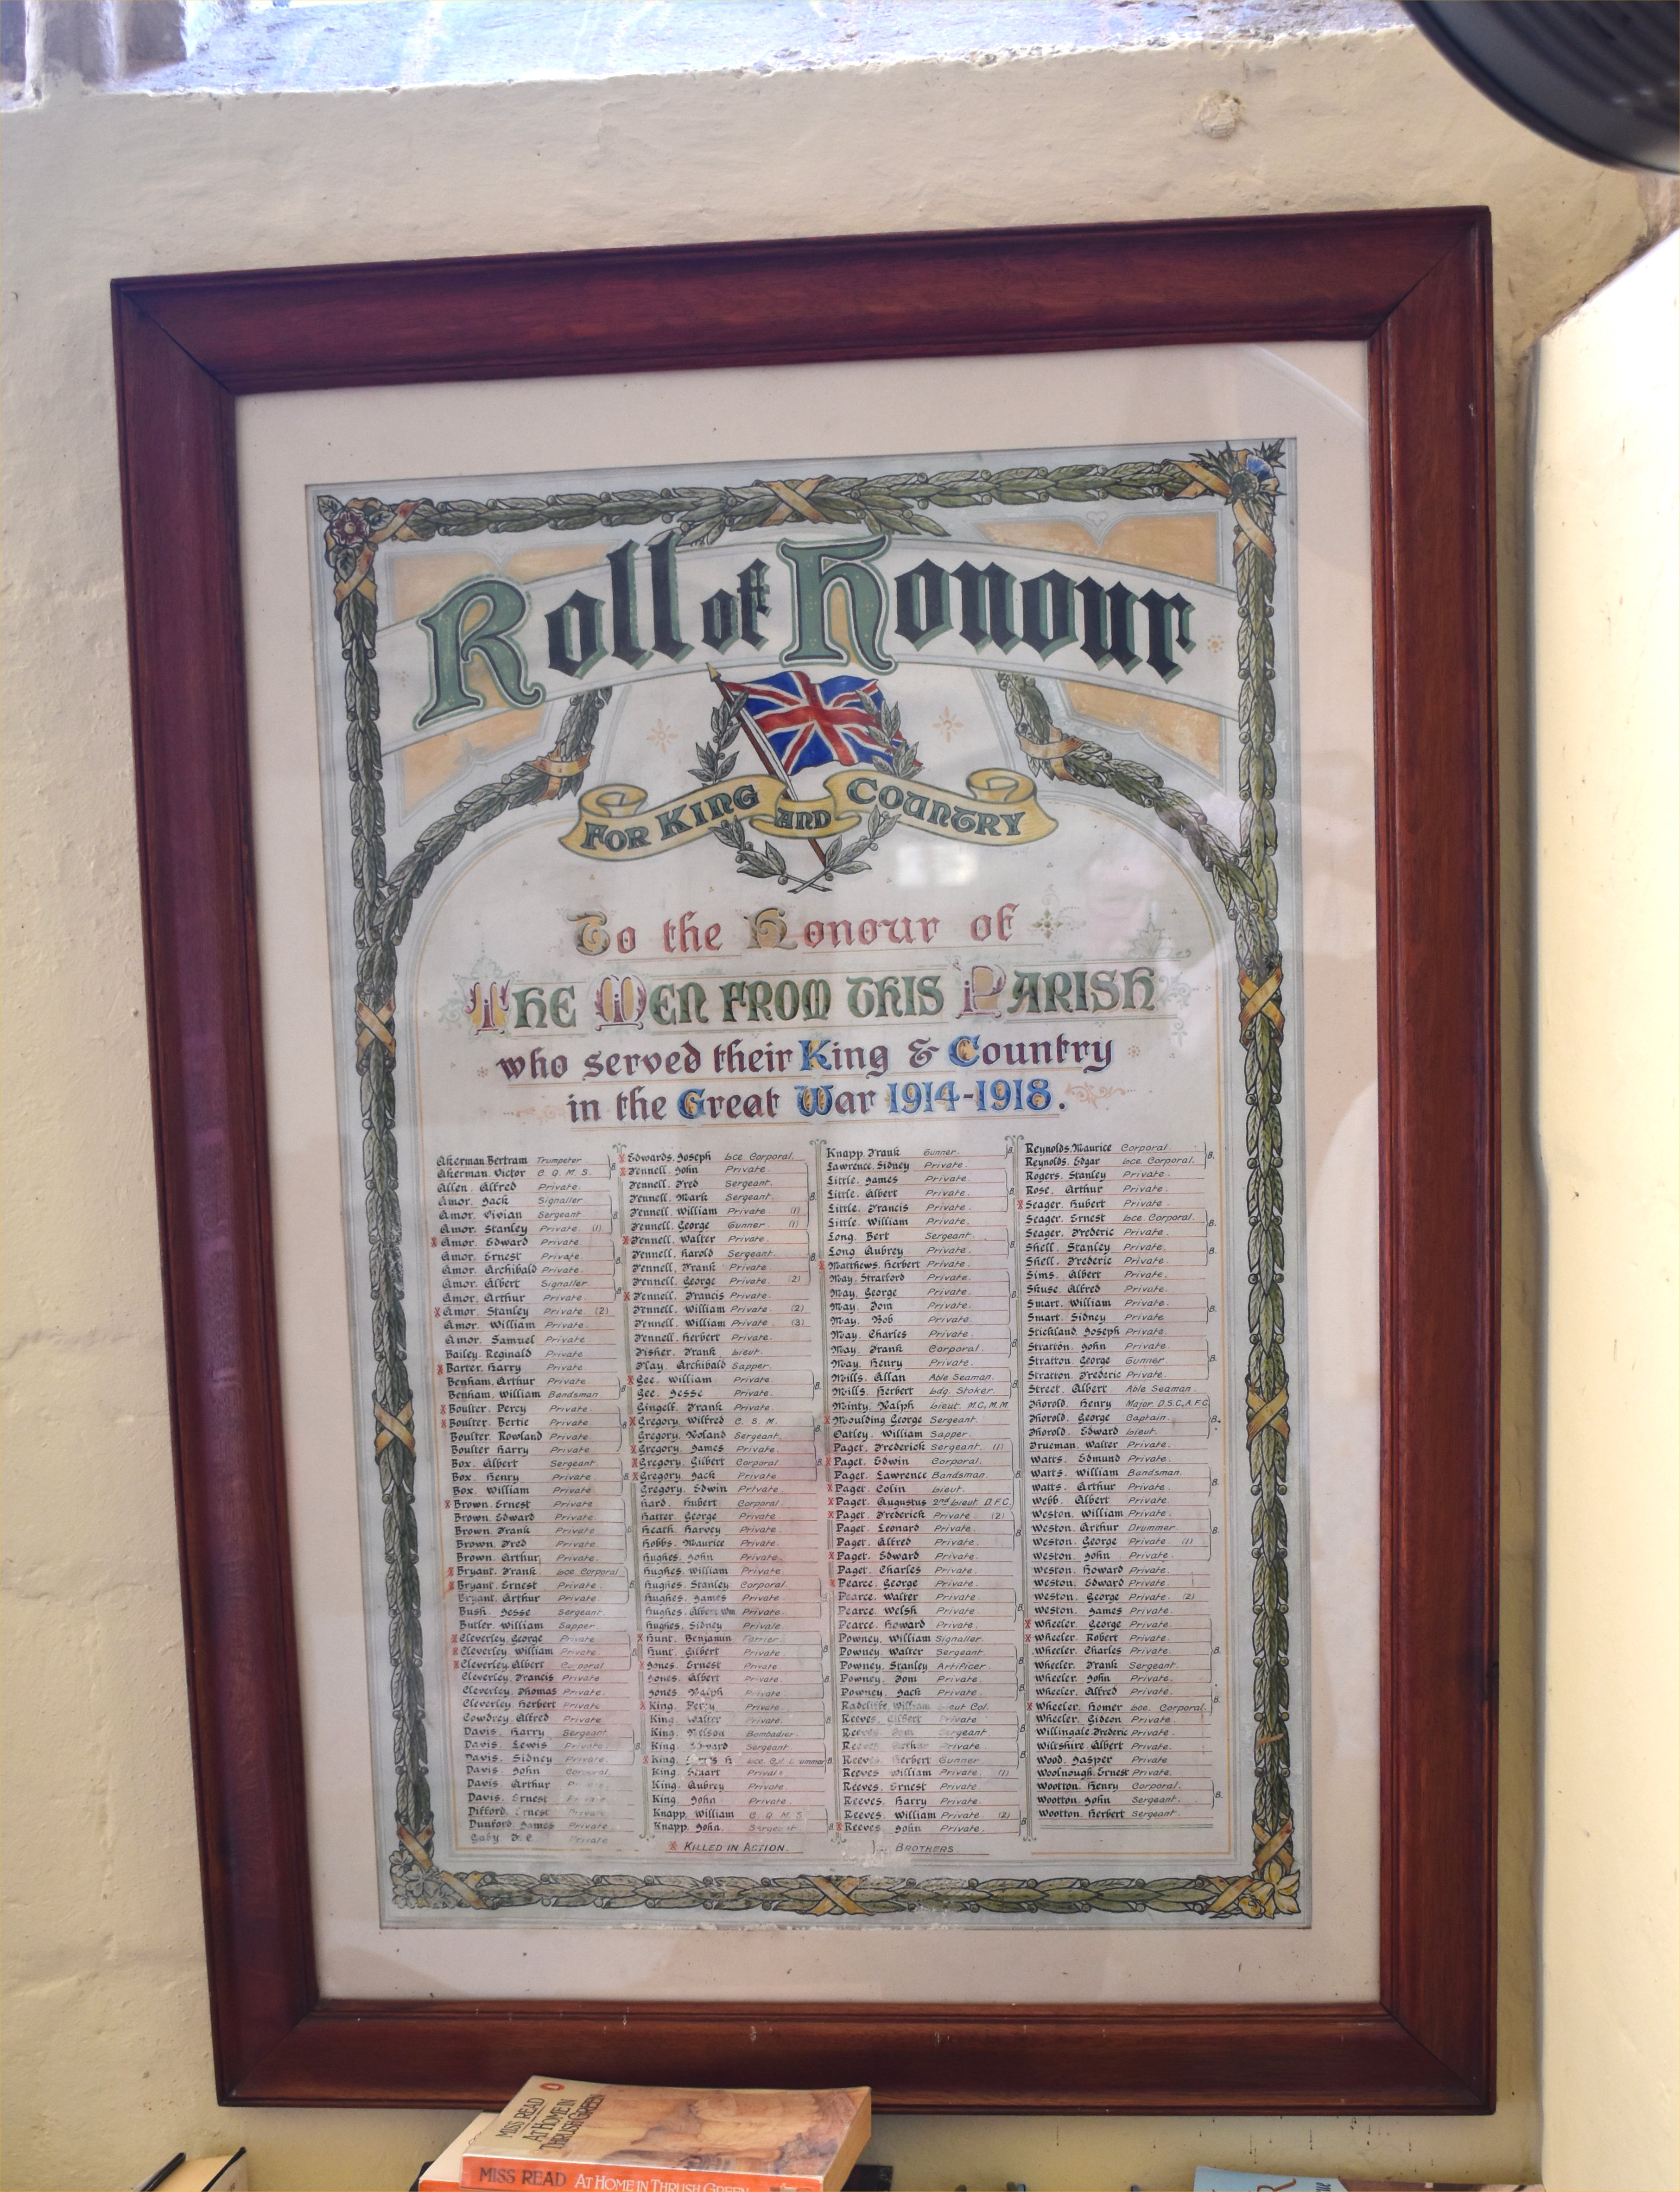 Roll of Honour
FOR KING AND COUNTRY
To the Honour of
THE MEN FROM THIS PARISH
who served their King & Country
in the Great War 1914-1918.
Akerman. Bertram Trumpeter
Akerman. Victor C.Q.M.S.
Allen. Alfred Private.
Amor. Jack Signaller
Amor. Vivian Sergeant
Amor. Stanley Private (1)
x Amor. Edward Private
Amor. Ernest Private
Amor. Archibald Private.
Amor. Albert Signaller
Amor. Arthur Private.
x Amor. Stanley Private (2)
Amor. William Private.
Amor. Samuel Private
Bailey. Reginald Private
x Barter. Harry Private
Benham. Arthur Private.
Benham. William Bandsman
x Boulter. Percy Private.
x Boulter. Bertie Private.
Boulter. Rowland Private.
Boulter Harry Private.
Box. Albert Sergeant
Box. Henry Private.
Box. William Private.
x Brown. Ernest Private
Brown. Edward Private.
Brown. Frank Private
Brown. Fred Private.
Brown. Arthur Private.
x Bryant. Frank Lce. Corporal
x Bryant. Ernest Private.
Bryant. Arthur Private.
Bush. Jesse Sergeant
Butler. William Sapper
x Cleverley. George Private
x Cleverley. William Private
x Cleverley. Albert Corporal
Cleverley. Francis Private
Cleverley. Thomas Private.
Cleverley. Herbert Private
Cowdrey. Alfred Private
Davis. Harry Sergeant.
Davis. Lewis Private
Davis. Sidney Private.
Davis. John Corporal.
Davis. Arthur
Davis. Ernest Private
Difford. Ernest Private
Dunford. James Private
Gaby Private
x Edwards. Joseph Lce Corporal.
x Fennell. John Private.
Fennell. Fred Sergeant.
Fennell. Mark Sergeant.
Fennell. William Private (1)
Fennell. George Gunner (1)
x Fennell. Walter Private.
Fennell. Harold Sergeant.
Fennell. Frank Private
Fennell. George Private. (2)
x Fennell. Francis Private.
Fennell. William Private (2)
Fennell. William Private. (3)
Fennell. Herbert Private.
Fisher. Frank Lieut.
Flay. Archibald Sapper.
x Gee. William Private.
Gee. Jesse Private.
Gingell. Frank Private.
x Gregory. Wilfred C.S.M.
Gregory. Roland Sergeant.
x Gregory. James Private.
x Gregory. Gilbert Corporal
x Gregory. Jack Private
Gregory. Edwin Private
Hard. Hubert Corporal.
Hatter. George Private.
Heath. Harvey Private.
Hobbs. Maurice Private.
Hughes. John Private.
Hughes. William Private
Hughes. Stanley Corporal.
Hughes. James Private.
Hughes. Albert Wm Private.
Hughes. Sidney Private
x Hunt. Benjamin Farrier
Hunt. Gilbert Private
x Jones. Ernest Private
Jones. Albert Private.
Jones. Ralph Private
x King. Percy Private.
King. Walter Private.
King. Nelson Bombadier
King. Edward Sergeant.
x King.
King. Stuart Private
King. Aubrey Private.
King. John Private.
Knapp. William C.Q.M.S
Knapp. John. Sergeant.
Knapp. Frank Gunner.
Lawrence. Sidney Private.
Little. James Private.
Little. Albert Private.
Little. Francis Private.
Little. William Private.
Long. Bert Sergeant.
Long Aubrey Private.
x Matthews. Herbert Private.
May. Stratford Private.
May. George Private.
May. Tom Private.
May. Bob Private.
May. Charles Private.
May. Frank Corporal.
May. Henry Private.
Mills. Allan Able Seaman.
Mills. Herbert Ldg. Stoker.
Minty. Ralph Lieut. M.C, M.M.
x Moulding George Sergeant.
Oatley. William Sapper.
Paget. Frederick Sergeant. (1)
x Paget. Edwin Corporal.
Paget. Lawrence Bandsman.
x Paget. Colin Lieut.
x Paget. Augustus 2nd Lieut. D.F.C.
x Paget. Frederick Private. (2)
Paget. Leonard Private.
Paget. Alfred Private.
x Paget. Edward Private.
Paget. Charles Private.
x Pearce. George Private.
Pearce. Walter Private.
Pearce. Welsh Private
Pearce. Howard Private.
Powney. William Signaller.
Powney. Walter Sergeant.
Powney. Stanley Artificer.
Powney. Tom Private.
Powney. Jack Private.
Radcliffe. William Lieut Col.
Reeves. Gilbert Private
Reeves. Tom Sergeant
Reeves. Arthur Private.
Reeves. Herbert Gunner
Reeves William Private. (1)
Reeves. Ernest Private
Reeves. Harry Private.
Reeves. William Private. (2)
x Reeves. John Private.
Reynolds. Maurice Corporal.
Reynolds. Edgar Lce. Corporal.
Rogers. Stanley Private.
Rose. Arthur Private.
x Seager. Hubert Private.
Seager. Ernest Lce. Corporal.
Seager. Frederic Private.
Shell. Stanley Private.
Shell. Frederic Private.
Sims. Albert Private.
Skuse. Alfred Private.
Smart. William Private.
Smart. Sidney Private.
Stickland. Joseph Private.
Stratton. John Private.
Stratton. George Gunner
Stratton. Frederic Private.
Street. Albert Able Seaman.
Thorold. Henry Major. D.S.C, A.F.C
Thorold. George Captain.
Thorold. Edward Lieut.
Trueman. Walter Private.
Watts. Edmund Private.
Watts. William Bandsman.
Watts. Arthur Private.
Webb. Albert Private.
Weston. William Private.
Weston. Arthur Drummer.
Weston. George Private. (1)
Weston. John Private.
Weston. Howard Private.
Weston. Edward Private.
Weston. George Private. (2)
Weston. James Private.
x Wheeler. George Private.
x Wheeler. Robert Private.
Wheeler. Charles Private.
Wheeler. Frank Sergeant
Wheeler. John Private.
Wheeler. Alfred Private.
x Wheeler. Homer Lce. Corporal.
Wheeler. Gideon Private.
Willingale. Frederic Private.
Wiltshire. Albert Private.
Wood. Jasper Private
Woolnough. Ernest Private.
Wootton. Henry Corporal.
Wootton. John Sergeant.
Wootton. Herbert Sergeant.
x KILLED IN ACTION.
BROTHERS.
MISS READ
AT HOME IN
THRUSH GREEN
MISS READ AT HOME IN THRUSH GREEN